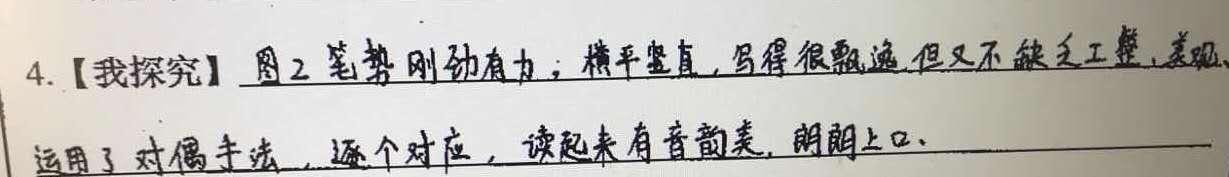 4.【我探究】图2笔势刚劲有力；横平竖直，写得很飘逸但又不缺乏工整、美观、
运用了对偶手法，逐个对应，读起来有音韵美，朗朗上口、